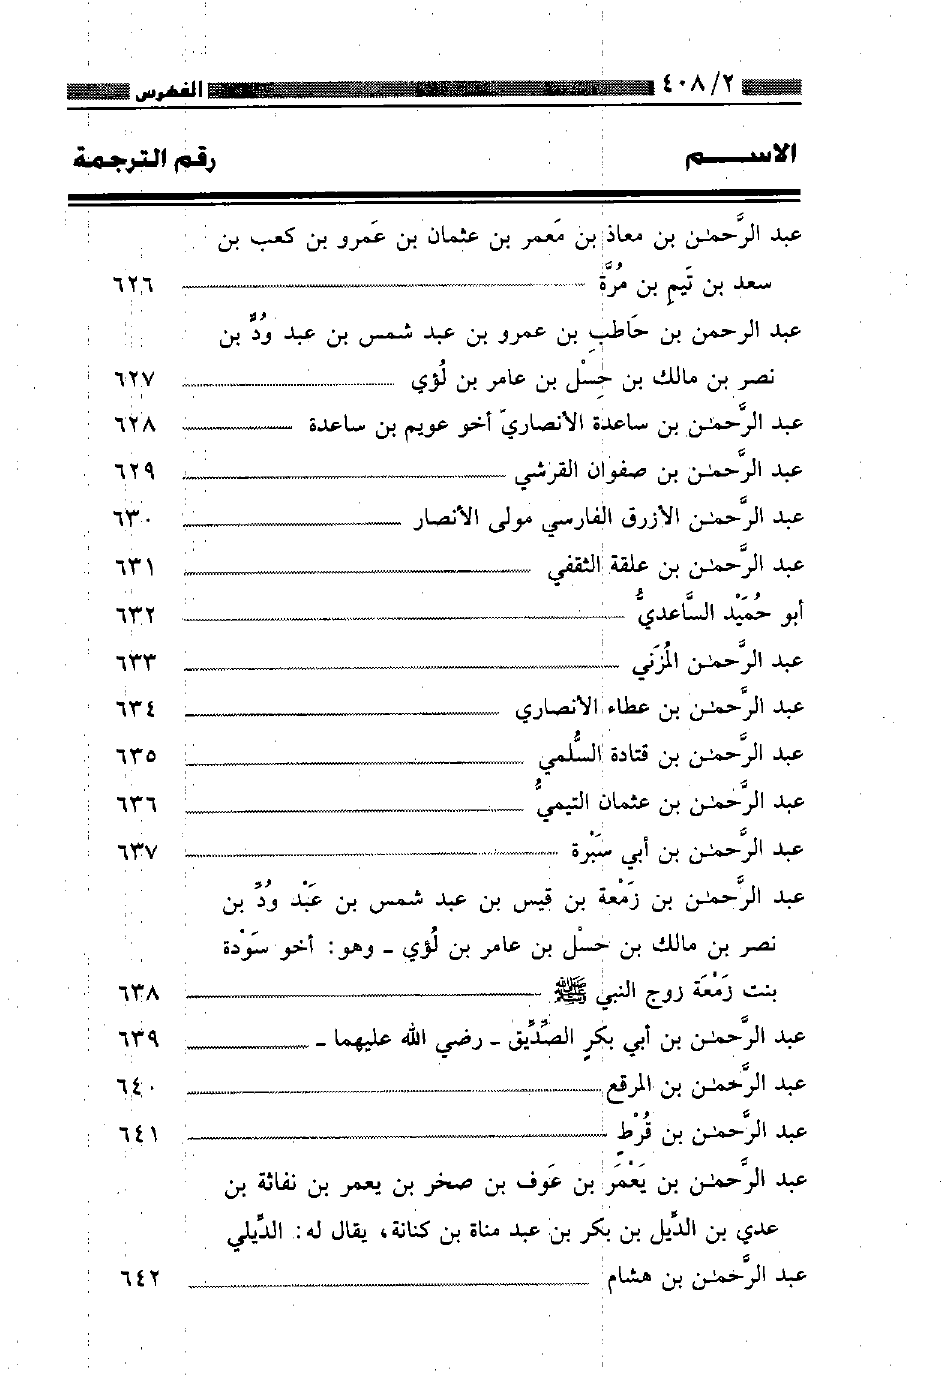 ٤٠٨/٢ الفهرس
الاســـم رقم الترجمة
عبد الرَّحمٰن بن معاذ بن مَعمر بن عثمان بن عَمرو بن كعب بن
سعد بن تَيم بن مُرَّة ٦٢٦
عبد الرحمن بن حَاطبِ بن عمرو بن عبد شمس بن عبد وُدٍّ بن
نصر بن مالك بن حِسْل بن عامر بن لُؤي ٦٢٧
عبد الرَّحمٰن بن ساعدة الأنصاريّ أخو عويم بن ساعدة ٦٢٨
عبد الرَّحمٰن بن صفوان القرشي ٦٢٩
عبد الرَّحمٰن الأزرق الفارسي مولى الأنصار ٦٣٠
عبد الرَّحمٰن بن علقة الثقفي ٦٣١
أبو حُمَيْد السَّاعديُّ ٦٣٢
عبد الرَّحمٰن المُزَني ٦٣٣
عبد الرَّحمٰن بن عطاء الأنصاري ٦٣٤
عبد الرَّحمٰن بن قتادة السُّلمي ٦٣٥
عبد الرَّحمٰن بن عثمان التيميُّ ٦٣٦
عبد الرَّحمٰن بن أبي سَبْرة ٦٣٧
عبد الرَّحمٰن بن زَمْعة بن قيس بن عبد شمس بن عَبْد وُدّ بن
نصر بن مالك بن حسْل بن عامر بن لُؤي ـ وهو: أخو سَوْدة
بنت زَمْعَة زوج النبي ﷺ ٦٣٨
عبد الرَّحمٰن بن أبي بكرٍ الصِّدِّيق ـ رضي الله عليهما ـ ٦٣٩
عبد الرَّحمٰن بن المرقع ٦٤٠
عبد الرَّحمٰن بن قُرْطٍ ٦٤١
عبد الرَّحمٰن بن يَعْمَر بن عَوف بن صخر بن يعمر بن نفاثة بن
عدي بن الدِّيل بن بكر بن عبد مناة بن كنانة، يقال له: الدِّيلي
عبد الرَّحمٰن بن هشام ٦٤٢